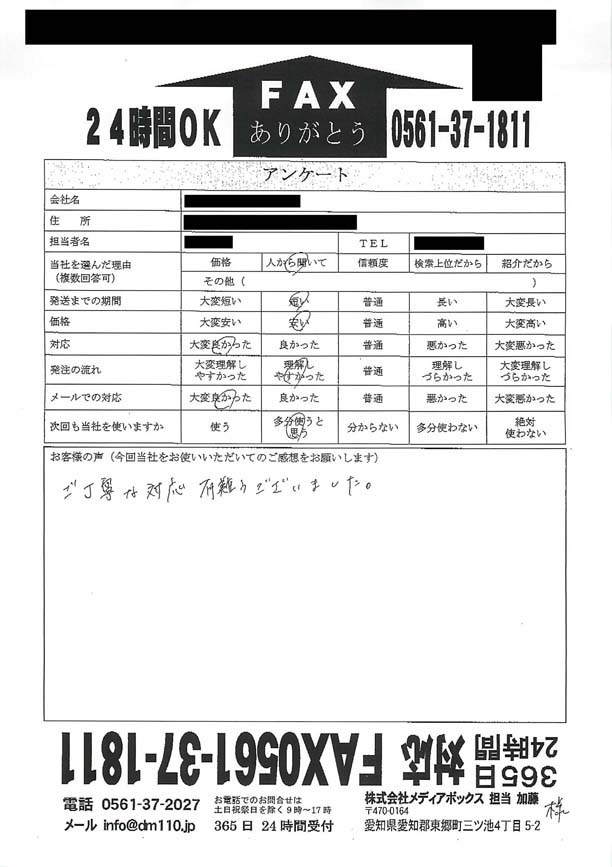 FAX
ありがとう
24時間OK
0561-37-1811
アンケート
会社名
住　所
担当者名 TEL
当社を選んだ理由（複数回答可） 価格 人から聞いて 信頼度 検索上位だから 紹介だから
その他（ ）
発送までの期間 大変短い 短い 普通 長い 大変長い
価格 大変安い 安い 普通 高い 大変高い
対応 大変良かった 良かった 普通 悪かった 大変悪かった
発注の流れ 大変理解しやすかった 理解しやすかった 普通 理解しづらかった 大変理解しづらかった
メールでの対応 大変良かった 良かった 普通 悪かった 大変悪かった
次回も当社を使いますか 使う 多分使うと思う 分からない 多分使わない 絶対使わない
お客様の声（今回当社をお使いいただいてのご感想をお願いします）
ご丁寧な対応 有難うございました。
365日
24時間
対応 FAX0561-37-1811
電話 0561-37-2027
お電話でのお問合せは
土日祝祭日を除く9時～17時
メール info@dm110.jp
365日 24時間受付
株式会社メディアボックス 担当 加藤 様
〒470-0164
愛知県愛知郡東郷町三ツ池4丁目5-2